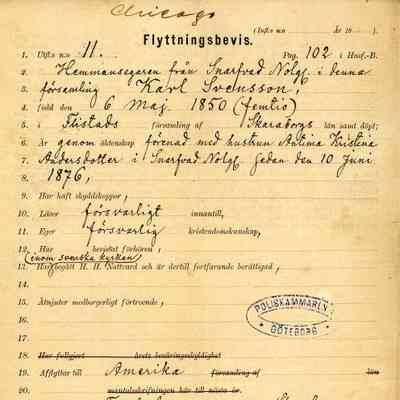 Chicago
(Utfl: n:o  År 18 ).
Flyttningsbevis.
1. Utfl: n:o 11. Pag. 102 i Husf.-B.
2. Hemmansegaren från Snarfvad Nolg. i denna
3. församling Karl Svensson,
4. född den 6 Maj 1850 (femtio)
5. i Flistads församling af Skaraborgs län samt döpt;
6. Är genom äktenskap förenad med hustrun Kristina
7. Andersdotter i Snarfvad Nolg. sedan den 10 Juni
8. 1876,
9. Har haft skyddskoppor,
10. Läser försvarligt innantill,
11. Eger försvarlig kristendomskunskap,
12. Har bevistat förhören,
(inom svenska kyrkan)
13. Har begått H. H. Nattvard och är dertill fortfarande berättigad,
14.
15. Åtnjuter medborgerligt förtroende,
16.
17.
POLISKAMMAREN
GÖTEBORG
18. Har fullgjort årets beväringsskyldighet
19. Afflyttar till Amerika församling af län
20. mantalsskrifningen här till nästa år.